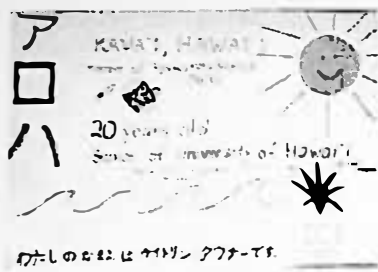 ア
ロ
ハ
KAUA'I, HAWAI'I
20 years old
Senior at University of Hawai'i
わたしのなまえは ケイトリン です.